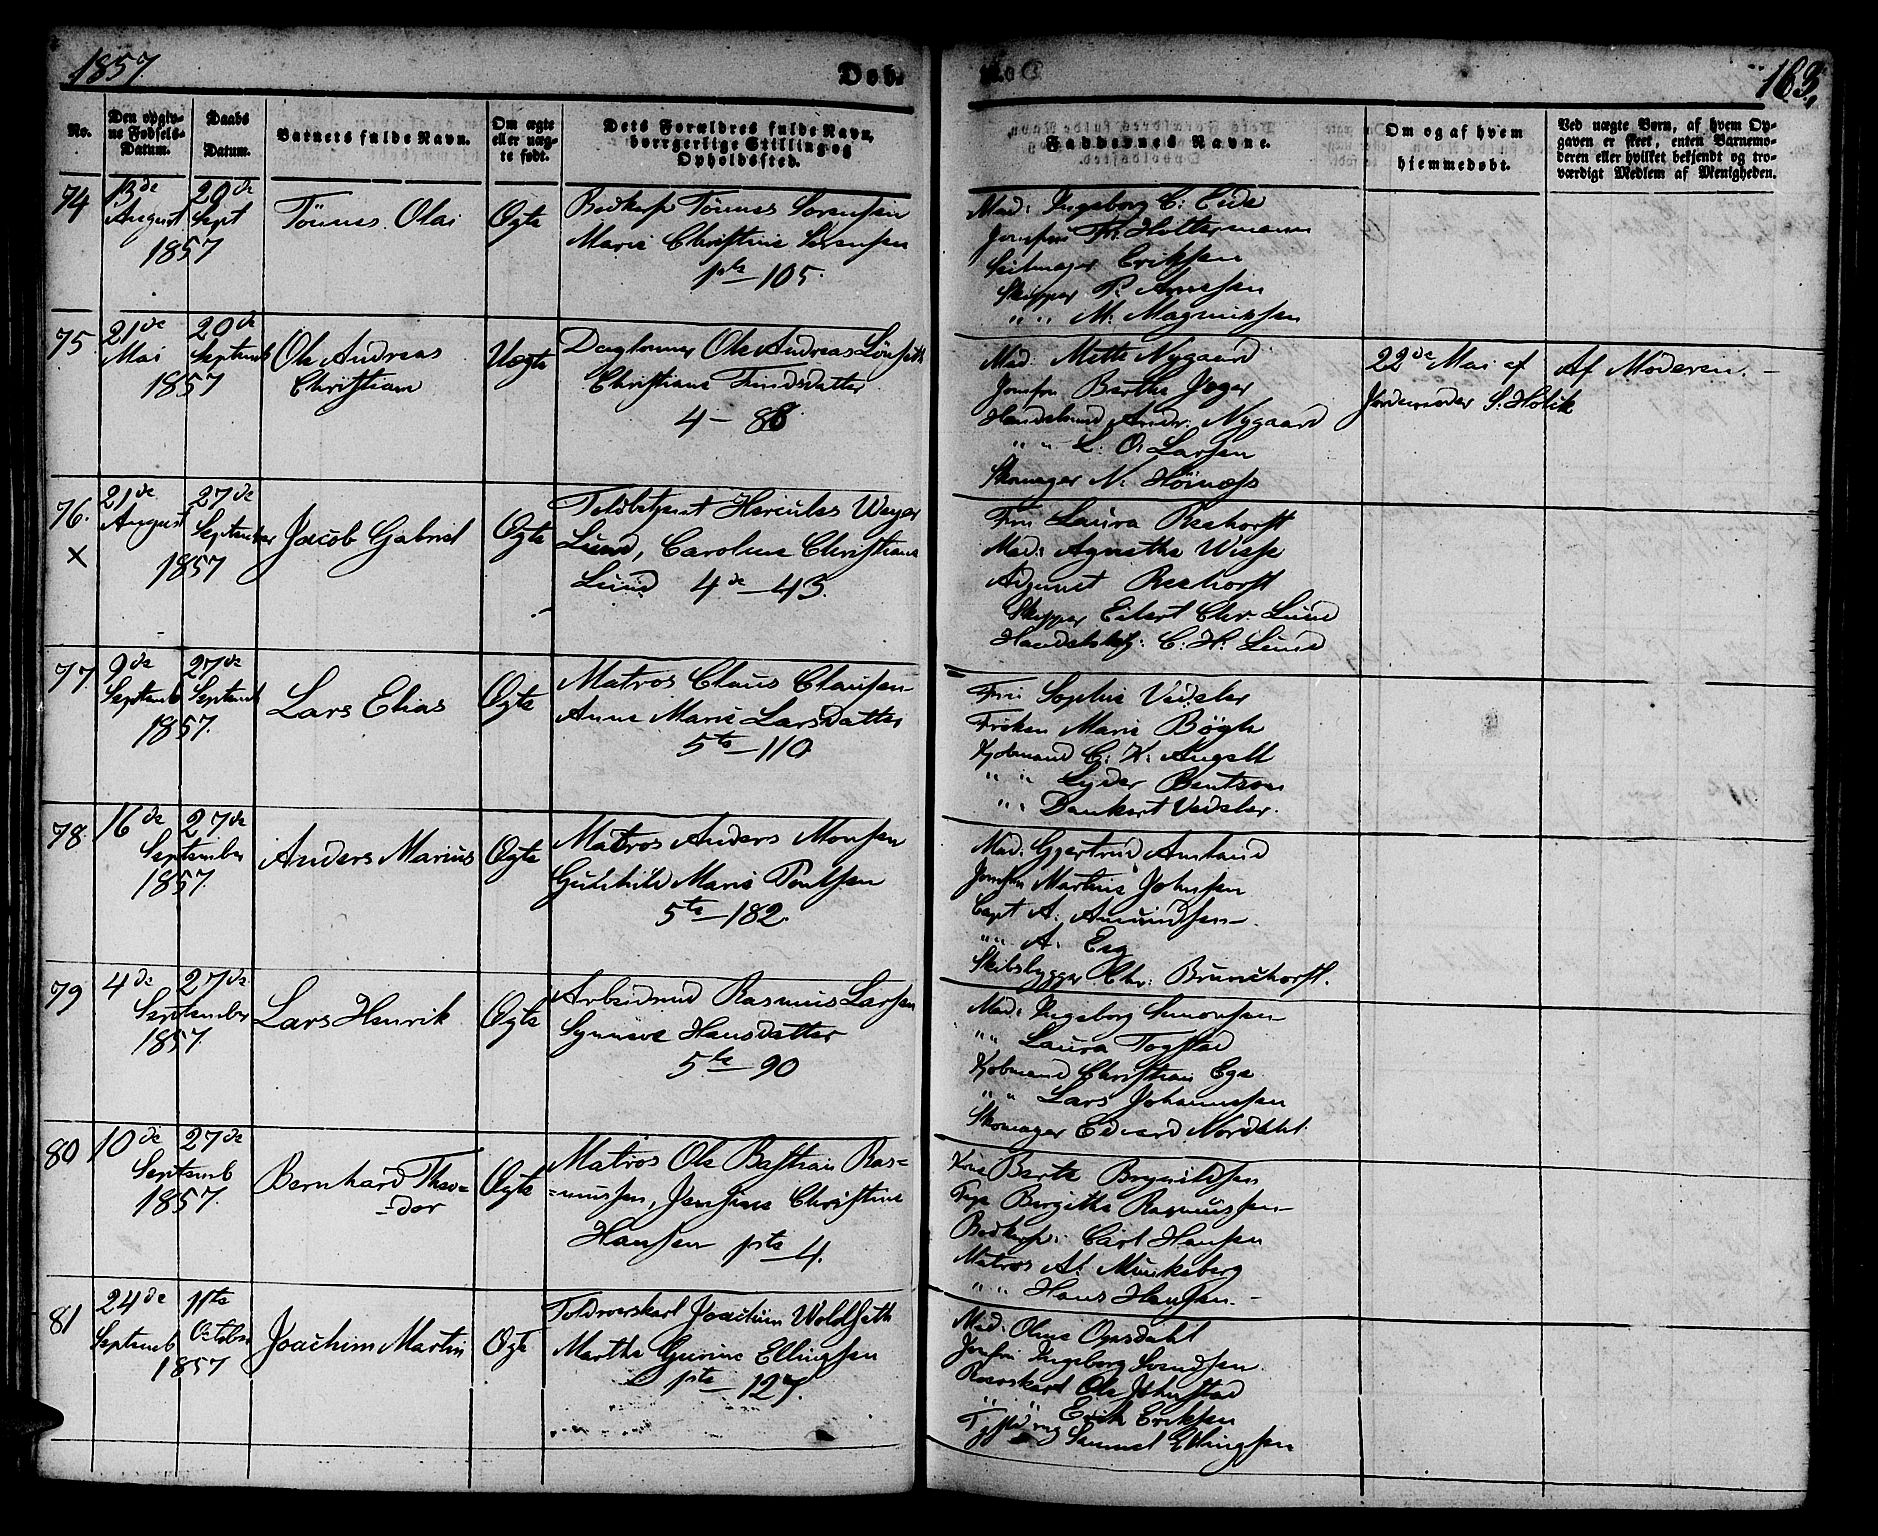 1857.
Døb.
163,
No.
Den opgiv-
ne Fødsels-
Datum.
Daabs
Datum.
Barnets fulde Navn.
Om ægte
eller uæg-
te født.
Dets Forældres fulde Navn,
borrgerlige Stilling og
Opholdssted.
Faddernes Navne.
Om og af hvem
hjemmedøbt.
Ved uægte Børn, af hvem Op-
gaven er skeet, enten Barnemo-
deren eller hvilket bekjendt og tro-
værdigt Medlem af Menigheden.
74
13de
August
1857
20de
Sept
Tönnes Olai
Ægte
Tönnes Sörensen
Marie Christine Sörensen
1ste 105.
Mad: Ingeborg C: Eide
Jomfru Fr. Holtermann
Seilmager Eriksen
Skipper P. Arnesen
" " M. Magnussen
75.
21de
Mai
1857
20de
Septemb
Ole Andreas
Christian
Uægte
Daglönner Ole Andreas
Christiane
4 - 88
Mad. Mette Nygaard
Jomfru Berthe Jeger
Andr. Nygaard
" " L. O. Larsen
Skomager N. Hörnæss
22de Mai af
Jordemoder S. Holik
Af Moderen. -
76.
x
21de
August
1857
27de
September
Jacob Gabriel
Ægte
Hercules Weyer
Lund, Caroline Christiane
Lund 4de - 43.
Fru Laura Reehorst
Mad: Agnethe Wisse
Adjunct Reehorst
Skipper Eilert Chr. Lund
C. H. Lund
77.
9de
Septemb
1857.
27de
Septemb
Lars Elias
Ægte
Matros Claus Clausen
Anne Marie Larsdatter
5te - 110
Fru Sophie Vedeler
Fröken Marie Bögh
Kjöbmand C. K. Angell
" " Lyder Bentson
" " Dankert Vedeler.
78.
16de
September
1857.
27de
Anders Marius
Ægte
Matros Anders Monsen
Gunhild Marie Poulsen
5te - 182.
Mad: Amland
Jomfru Martine Johnsen
Capt A. Amundsen -
" " A. Eeg
Skibsbygger Chr. Brunchorst.
79
4de
September
1857.
27de
Lars Henrik
Ægte
Arbeidmd Rasmus Larsen
Synneve Hansdatter
5te - 90
Mad: Ingeborg Simonsen
" " Laura Togstad
Kjöbmand Christian Ege
" " Lars Johannessen
Skomager Edvard Nordahl.
80
10de
Septemb
1857.
27de
Bernhard Theo=
=dor
Ægte
Matros Ole Bastian Ras=
=mussen, Jensine Christine
Hansen 1ste 4.
Kone Berte Brynildsen
Pige Bergitte Rasmussen
Carl Hansen
Matros A. Munkeberg
" " Hans Hansen. -
81
24de
Septemb
1857
11te
October
Joachim Martin
Ægte
Toldroerskarl Joachim Woldseth
Marthe Gurine Ellingsen
1ste - 127.
Mad. Oline Opsdahl
Jomfru Ingeborg Svendsen
Roerskarl Ole Johnstad
" " Erik Eriksen
Samuel Ellingsen